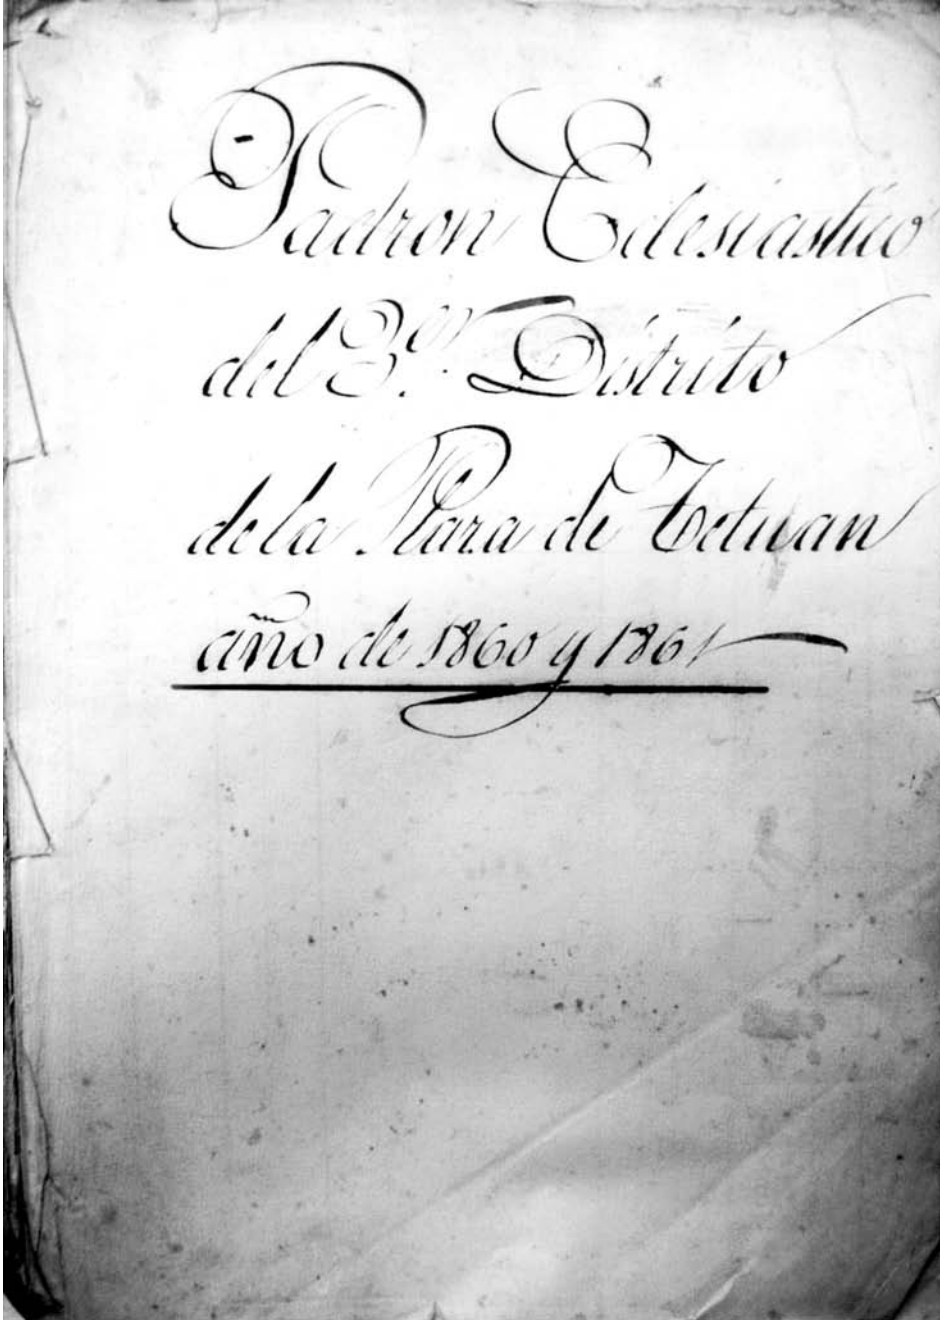 Padron Eclesiastico
del 3er. Distrito
de la Plaza de Tetuan
año de 1860 y 1861